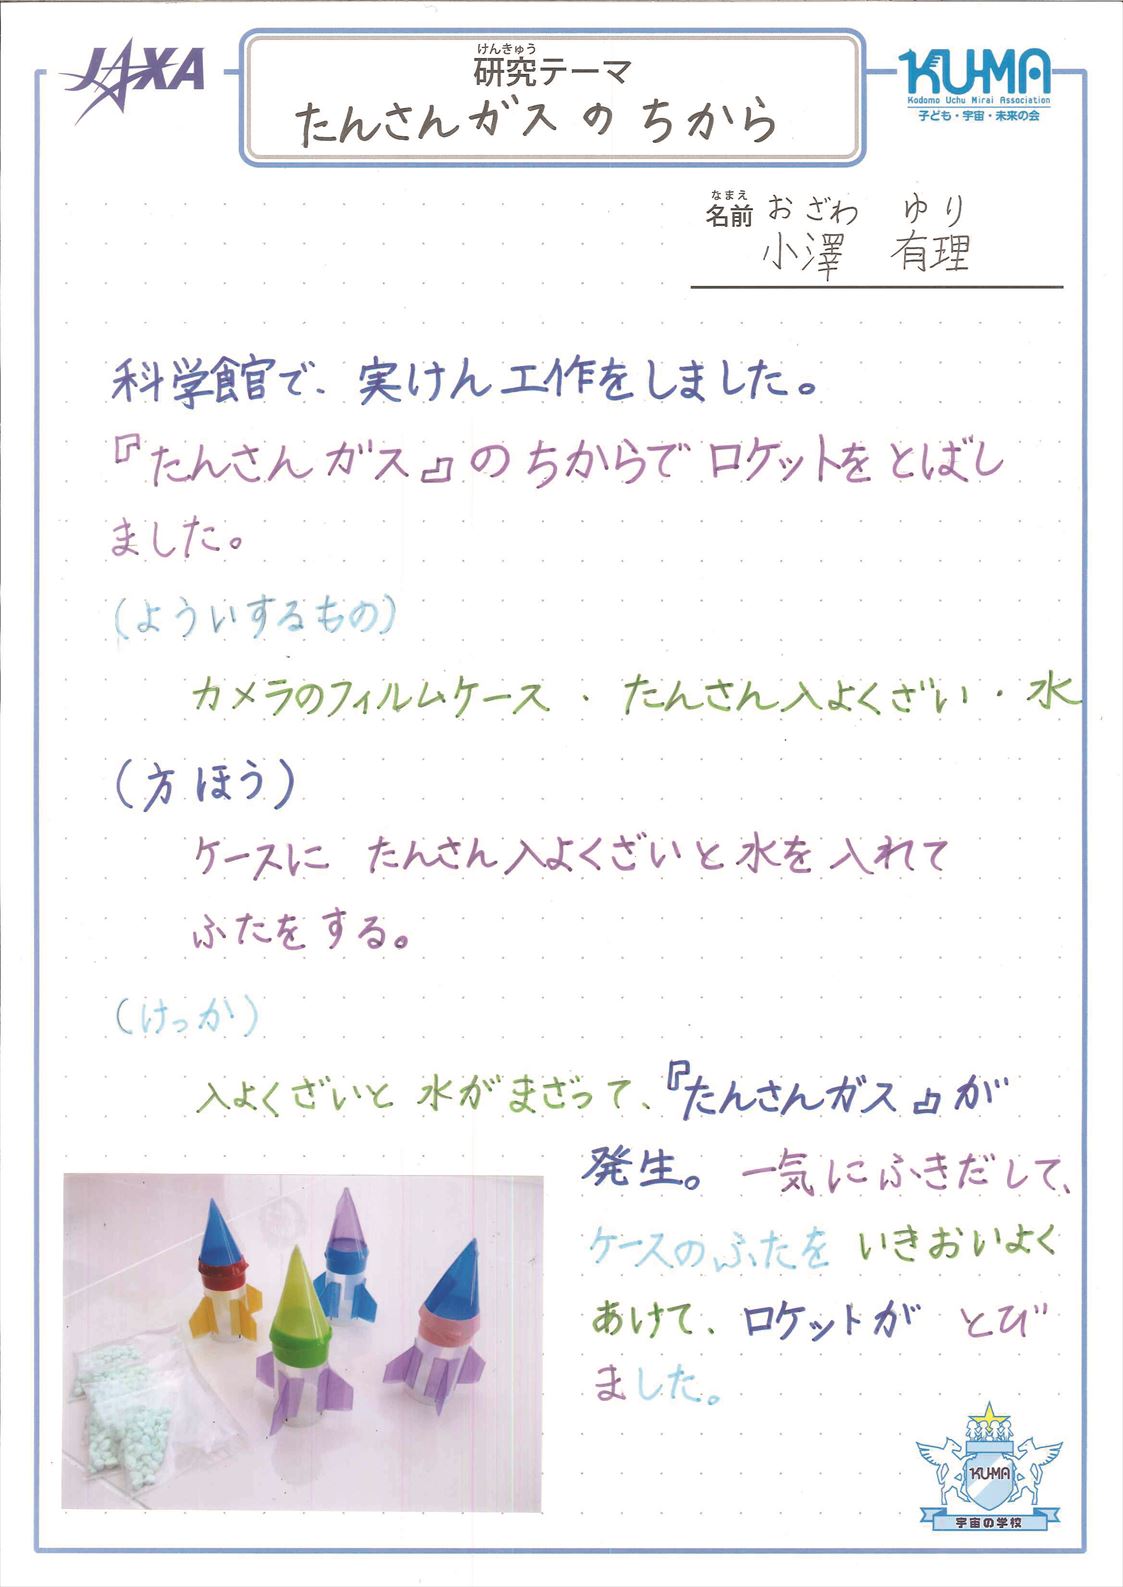 JAXA
けんきゅう
研究テーマ
たんさんガスのちから
KU-MA
Kodomo Uchu Mirai Association
子ども・宇宙・未来の会
なまえ おざわ ゆり
名前 小澤 有理
科学館で、実けん工作をしました。
『たんさんガス』のちからでロケットをとばし
ました。
(よういするもの)
カメラのフィルムケース ・ たんさん入よくざい ・ 水
(方ほう)
ケースに たんさん入よくざいと水を入れて
ふたをする。
(けっか)
入よくざいと水がまざって、『たんさんガス』が
発生。一気にふきだして、
ケースのふたを いきおいよく
あけて、ロケットが とび
ました。
KU-MA
宇宙の学校